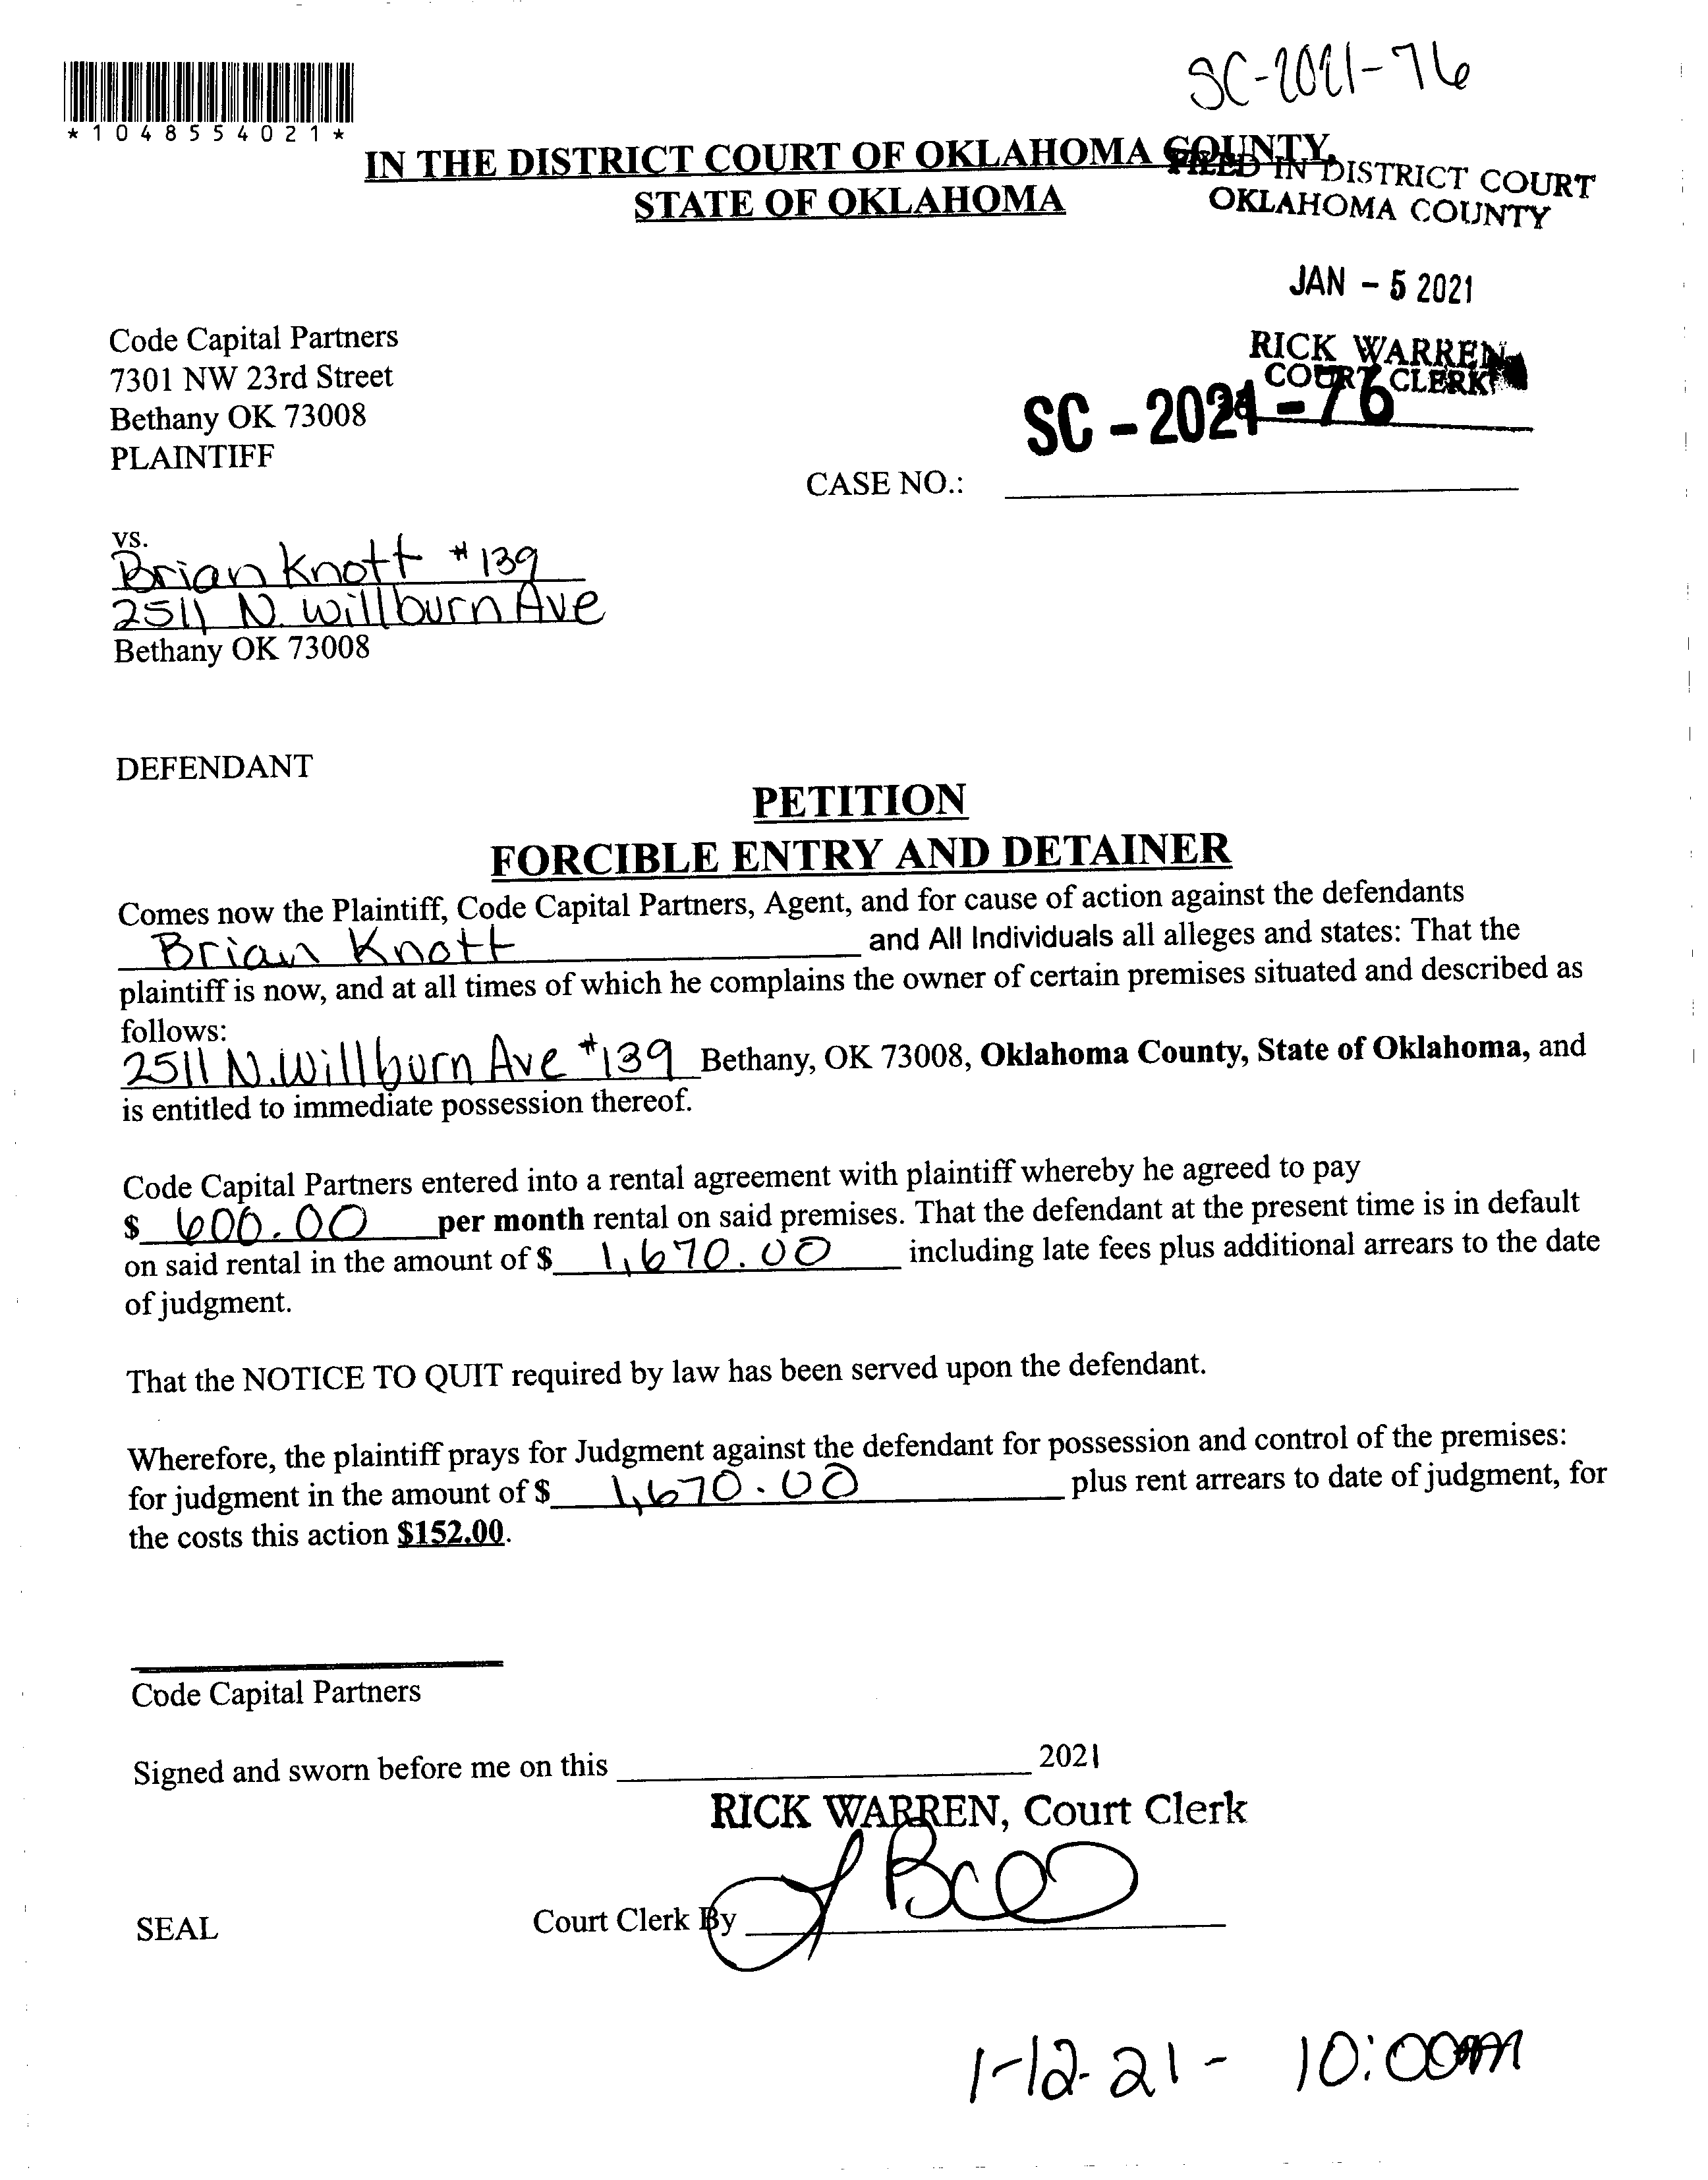 SC-2021-76
*1048554021*
IN THE DISTRICT COURT OF OKLAHOMA COUNTY,
STATE OF OKLAHOMA
FILED IN DISTRICT COURT
OKLAHOMA COUNTY
JAN - 5 2021
RICK WARREN
COURT CLERK
SC - 2021 - 76
Code Capital Partners
7301 NW 23rd Street
Bethany OK 73008
PLAINTIFF
CASE NO.:
vs.
Brian Knott #139
2511 N. Willburn Ave
Bethany OK 73008
DEFENDANT
PETITION
FORCIBLE ENTRY AND DETAINER
Comes now the Plaintiff, Code Capital Partners, Agent, and for cause of action against the defendants
Brian Knott and All Individuals all alleges and states: That the
plaintiff is now, and at all times of which he complains the owner of certain premises situated and described as
follows:
2511 N. Willburn Ave #139 Bethany, OK 73008, Oklahoma County, State of Oklahoma, and
is entitled to immediate possession thereof.
Code Capital Partners entered into a rental agreement with plaintiff whereby he agreed to pay
$ 600.00 per month rental on said premises. That the defendant at the present time is in default
on said rental in the amount of $ 1,670.00 including late fees plus additional arrears to the date
of judgment.
That the NOTICE TO QUIT required by law has been served upon the defendant.
Wherefore, the plaintiff prays for Judgment against the defendant for possession and control of the premises:
for judgment in the amount of $ 1,670.00 plus rent arrears to date of judgment, for
the costs this action $152.00.
Code Capital Partners
Signed and sworn before me on this 2021
RICK WARREN, Court Clerk
SEAL
Court Clerk By
1-12-21- 10:00am